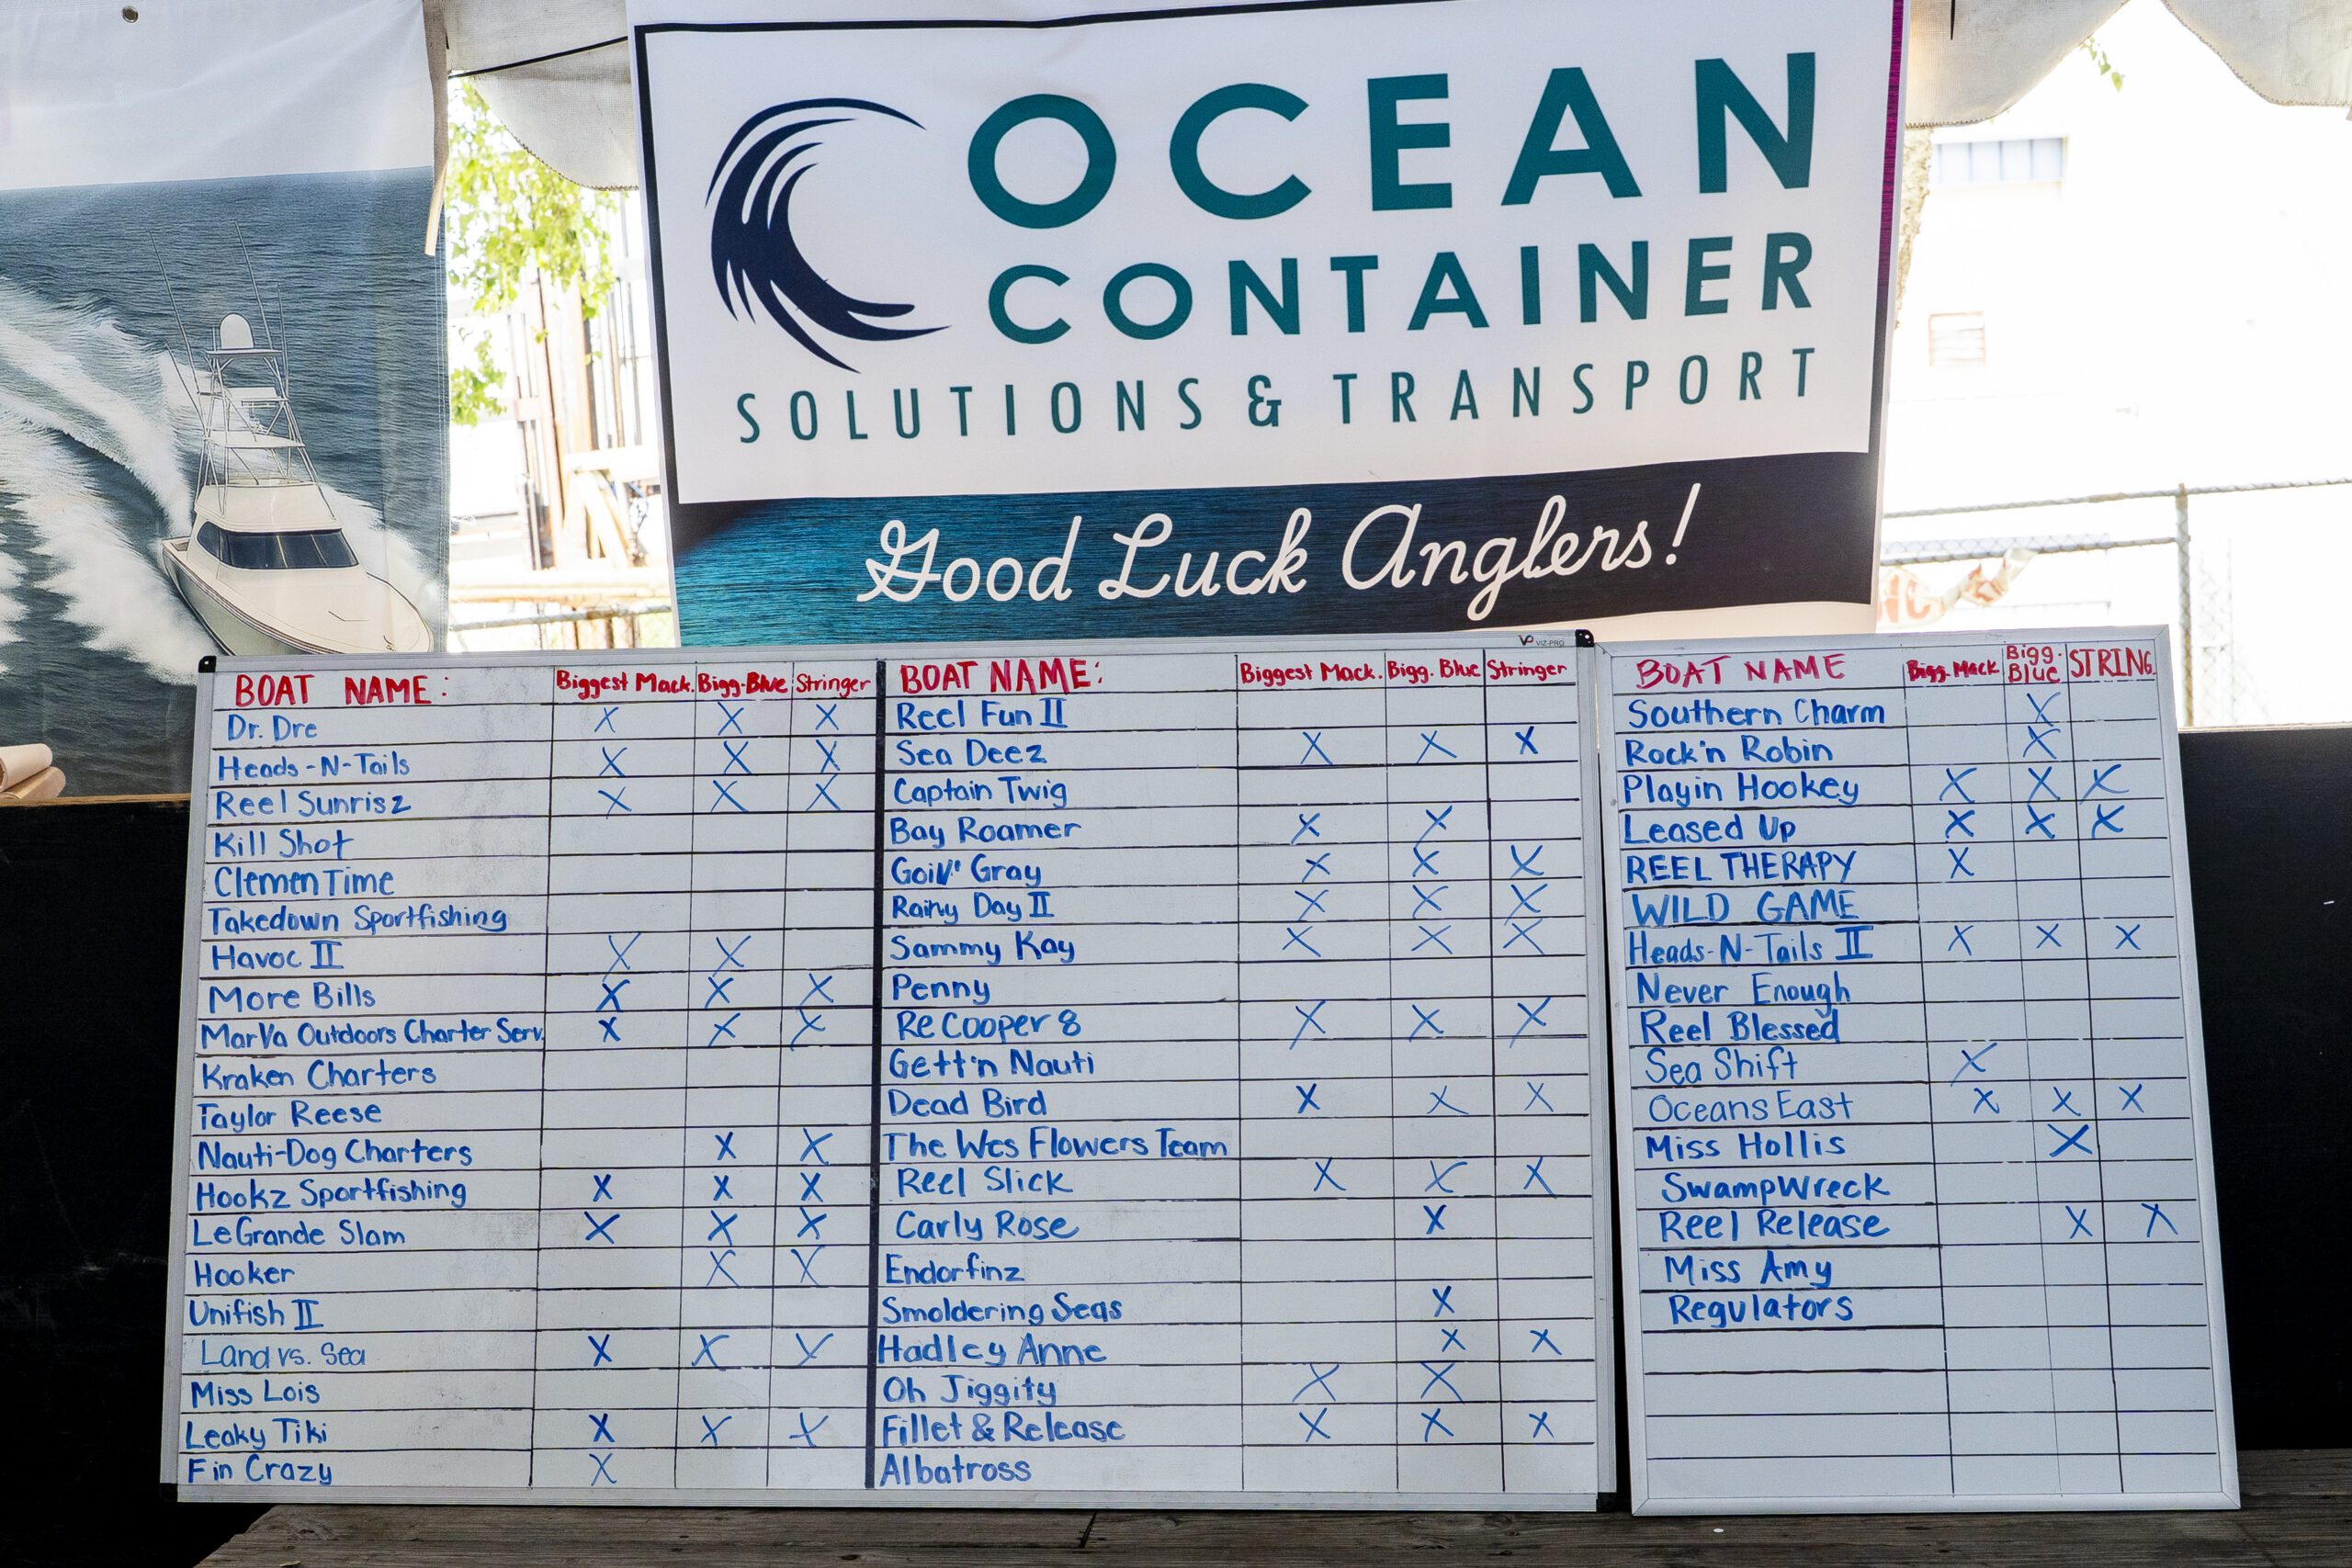 OCEAN
CONTAINER
SOLUTIONS & TRANSPORT
Good Luck Anglers!
VIZ-PRO
BOAT NAME: Biggest Mack. Bigg. Blue Stringer
Dr. Dre X X X
Heads-N-Tails X X X
Reel Sunrisz X X X
Kill Shot
Clemen Time
Takedown Sportfishing
Havoc II X X
More Bills X X X
MarVa Outdoors Charter Serv. X X X
Kraken Charters
Taylor Reese
Nauti-Dog Charters X X
Hookz Sportfishing X X X
LeGrande Slam X X X
Hooker X X
Unifish II
Land vs. Sea X X X
Miss Lois
Leaky Tiki X X X
Fin Crazy X
BOAT NAME: Biggest Mack. Bigg. Blue Stringer
Reel Fun II
Sea Deez X X X
Captain Twig
Bay Roamer X X
Goin' Gray X X X
Rainy Day II X X X
Sammy Kay X X X
Penny
Re Cooper 8 X X X
Gett'n Nauti
Dead Bird X X X
The Wes Flowers Team
Reel Slick X X X
Carly Rose X
Endorfinz
Smoldering Seas X
Hadley Anne X X
Oh Jiggity X X
Fillet & Release X X X
Albatross
BOAT NAME Bigg. Mack Bigg. Blue STRING.
Southern Charm X
Rock'n Robin X
Playin Hookey X X X
Leased Up X X X
REEL THERAPY X
WILD GAME
Heads-N-Tails II X X X
Never Enough
Reel Blessed
Sea Shift X
Oceans East X X X
Miss Hollis X
SwampWreck
Reel Release X X
Miss Amy
Regulators